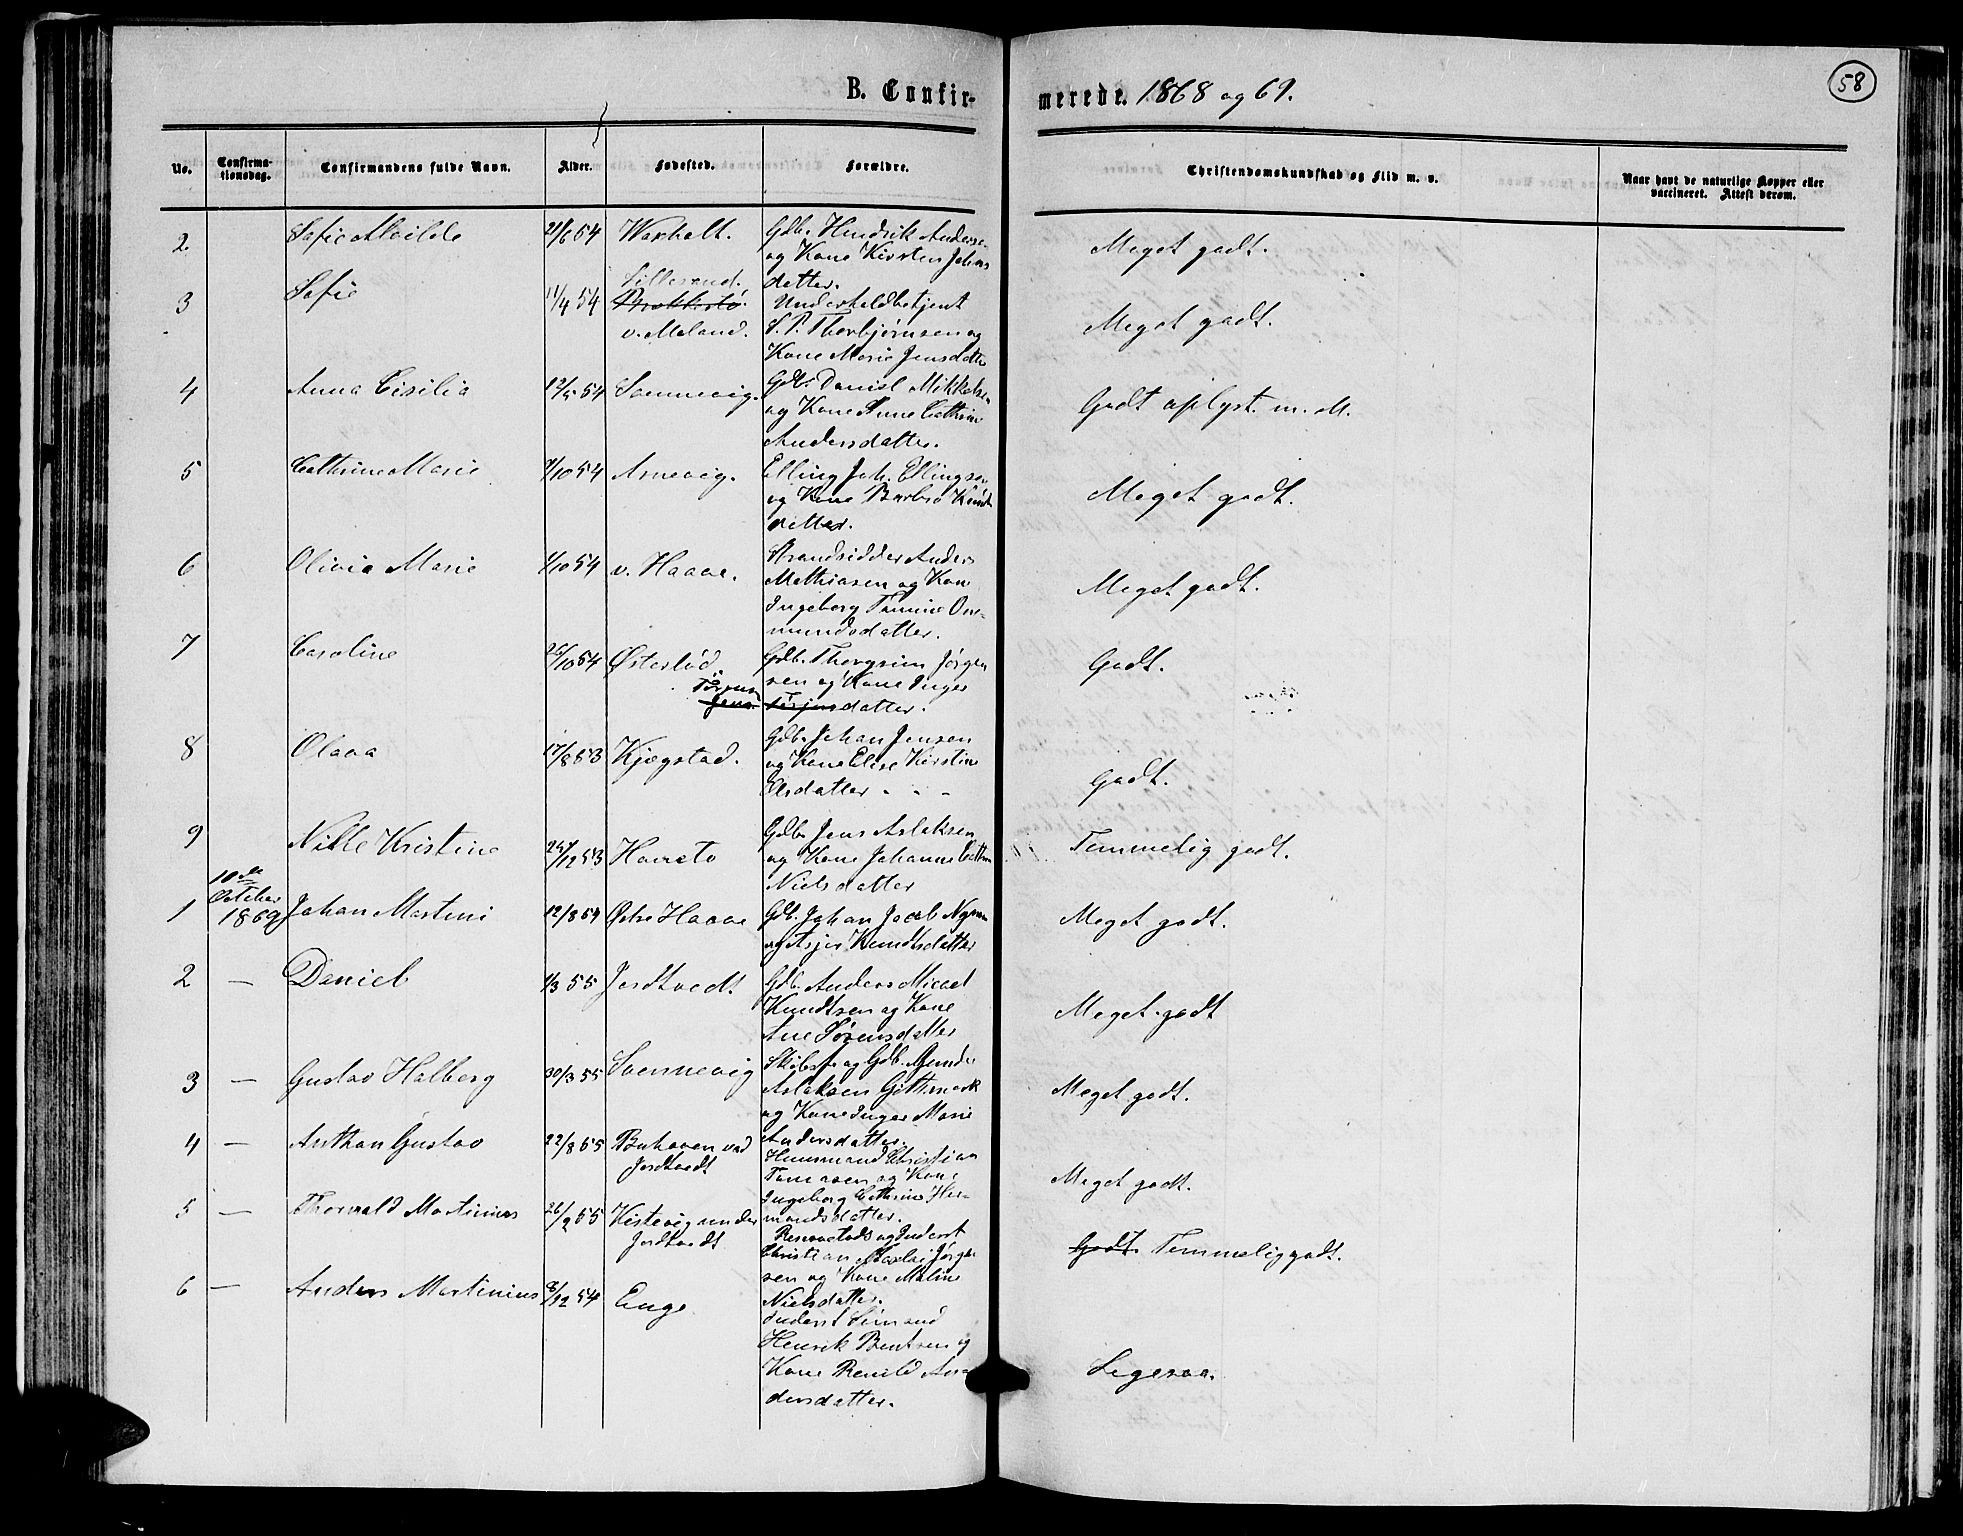 B. Confir-
merede. 1868 og 69.
58
No.
Confirma-
tionsdag.
Confirmandens fulde Navn.
Alder.
Fødested.
Forældre.
Christendomskundskab og Flid m. v.
Naar havt de naturlige Kopper eller
vaccineret. Attest derom.
2 Sofie Alvilde 21/6 54 Waxholt. Gdb. Hendrik Anders
og Kone Kirsten Johns
datter.
Meget godt.
3 Sofie 11/4 54 Lillesund.
v. Moland.
Underholdbetjent
S. P. Thorbjørnsen og
Kone Marie Jensdatter
Meget godt.
4 Anna Cisilia 12/5 54 Sømmevig. Gdb. Daniel Mikkels
og Kone Anne Cathrine
Andersdatter.
Godt oplyst. m. M.
5 Cathrine Marie 9/10 54 Arnevig. Elling Joh. Ellingsen
og Kone Barbro Knuds
datter.
Meget godt.
6 Olivia Marie 1/10 54 v. Haave. Strandsidder Anders
Mathiasen og Kone
Ingeborg Tomine Os-
mundsdatter.
Meget godt.
7 Caroline 25/10 54 Østerhød. Gdb. Thorgrim Jørgen
sen og Kone Inger
Tørjens
Jens Terjensdatter.
Godt.
8 Olava 17/8 53 Kjøgstad. Gdb. Johan Jensen
og Kone Elise Kirstine
Olsdatter - - -
Godt.
9 Nille Kristine 24/12 53 Havstø Gdb. Jens Aslaksen
og Kone Johanne Cathrine
Nielsdatter
Temmelig godt.
10de
October
1869
1 Johan Martini 12/8 54 Østre Haave Gdb. Johan Jacob
og Asjer Knudtsdatter
Meget godt.
2 — Daniel 1/3 55 Jordtvedt Gdb. Anders Micael
Knudtsen og Kone
Ane Sørensdatter
Meget godt
3 — Gustav Halberg 30/3 55 Sømmevig Skibsf. og Gdb. Gunder
Aslaksen Gittmark
og Kone Inger Marie
Andersdatter.
Meget godt.
4 — Anthon Gustav 22/8 55 Buhaven ved
Jordtvedt
Huusmand Christian
Tomasen og Kone
Ingeborg Cathrine Her-
mandsdatter.
Meget godt.
5 — Thorvald Martinius 26/2 55 Kistevig under
Jordtvedt
og Inderst
Christian Jørgen
sen og Kone Maline
Nielsdatter.
Godt. Temmelig godt.
6 — Anders Martinius 8/12 54 Enge
Inderst Sømand
Henrik Bentsen og
Kone Renild An-
dersdatter.
Ligesaa.